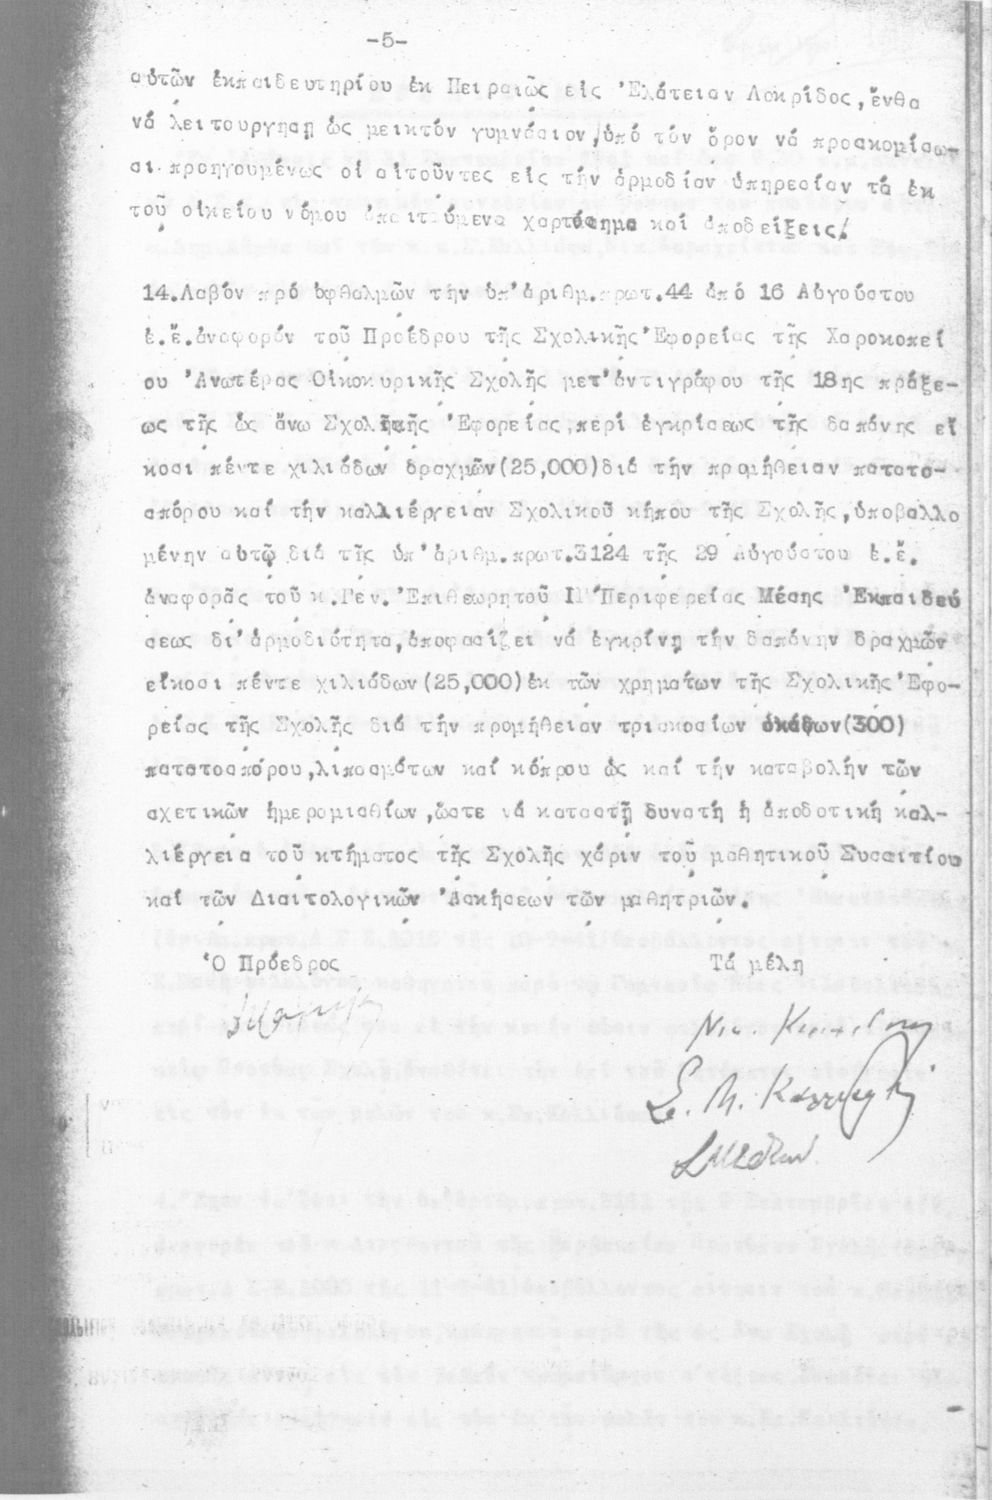 -5-
αὐτῶν ἐκπαιδευτηρίου ἐκ Πειραιῶς εἰς Ἐλάτειαν Λοκρίδος, ἔνθα
νά λειτουργήσῃ ὡς μεικτόν γυμνάσιον, ὑπό τόν ὅρον νά προσκομίσω-
σι προηγουμένως οἱ αἰτοῦντες εἰς τήν ἁρμοδίαν ὑπηρεσίαν τά ἐκ
τοῦ οἰκείου νόμου ἀπαιτούμενα χαρτόσημα καί ἀποδείξεις.
14.Λαβόν πρό ὀφθαλμῶν τήν ὑπ'ἀριθμ.πρωτ.44 ἀπό 16 Αὐγούστου
ἐ.ἔ.ἀναφοράν τοῦ Προέδρου τῆς Σχολικῆς Ἐφορείας τῆς Χαροκοπεί
ου Ἀνωτέρας Οἰκοκυρικῆς Σχολῆς μετ'ἀντιγράφου τῆς 18ης πράξε-
ως τῆς ὡς ἄνω Σχολικῆς Ἐφορείας,περί ἐγκρίσεως τῆς δαπάνης εἴ
κοσι πέντε χιλιάδων δραχμῶν(25,000)διά τήν προμήθειαν πατατο-
σπόρου καί τήν καλλιέργειαν Σχολικοῦ κήπου τῆς Σχολῆς,ὑποβαλλο
μένην αὐτῷ διά τῆς ὑπ'ἀριθμ.πρωτ.3124 τῆς 29 Αὐγούστου ἐ.ἔ.
ἀναφορᾶς τοῦ κ.Γεν.Ἐπιθεωρητοῦ Περιφερείας Μέσης Ἐκπαιδεύ
σεως δι'ἁρμοδιότητα,ἀποφασίζει νά ἐγκρίνῃ τήν δαπάνην δραχμῶν
εἴκοσι πέντε χιλιάδων(25,000)ἐκ τῶν χρημάτων τῆς Σχολικῆς Ἐφο-
ρείας τῆς Σχολῆς διά τήν προμήθειαν τριακοσίων ὀκάδων(300)
πατατοσπόρου,λιπασμάτων καί κόπρου ὡς καί τήν καταβολήν τῶν
σχετικῶν ἡμερομισθίων,ὥστε νά καταστῇ δυνατή ἡ ἀποδοτική καλ-
λιέργεια τοῦ κτήματος τῆς Σχολῆς χάριν τοῦ μαθητικοῦ Συσσιτίου
καί τῶν Διαιτολογικῶν Ἀσκήσεων τῶν μαθητριῶν.
Ὁ Πρόεδρος
Τά μέλη